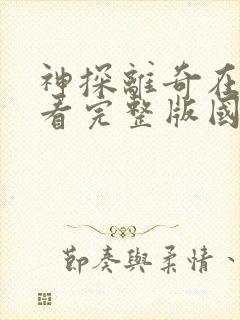 神探離奇在
看完整版國
節奏與柔情、